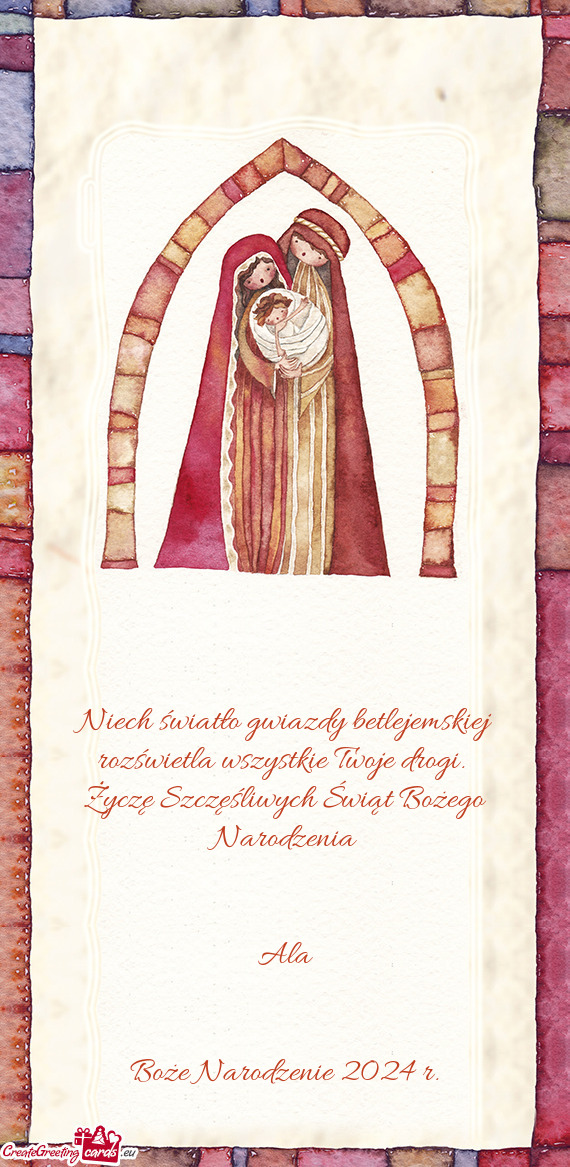 Niech światło gwiazdy betlejemskiej
rozświetla wszystkie Twoje drogi.
Życzę Szczęśliwych Świąt Bożego
Narodzenia
Ala
Boże Narodzenie 2024 r.
CreateGreetingcards.eu